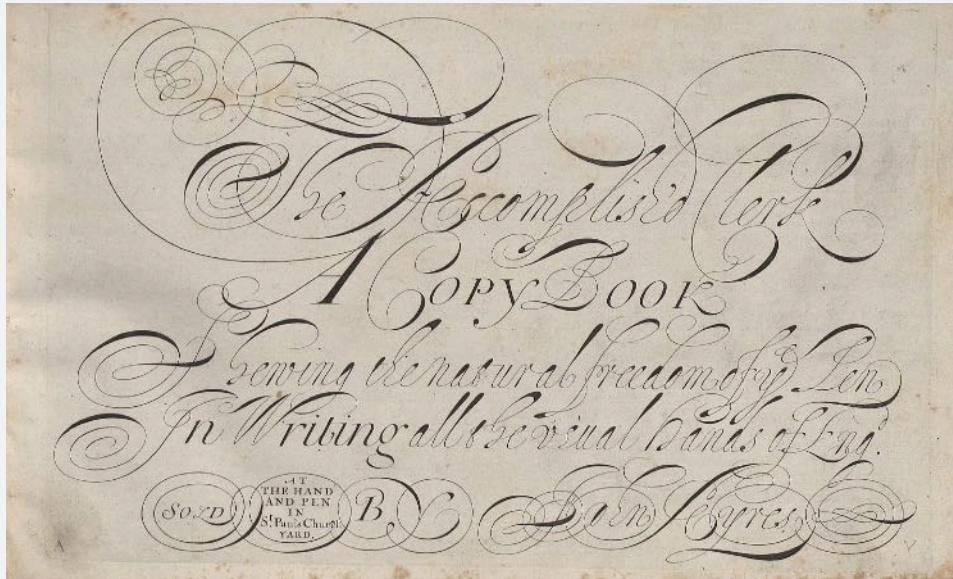 The Accomplish'd Clerk
A Copy Book
Shewing the natural freedom of yᵉ Pen
In Writing all the usual hands of Engᵈ.
SOLD
AT
THE HAND
AND PEN
IN
Sᵗ. Pauls Church
YARD.
By John Ayres
A